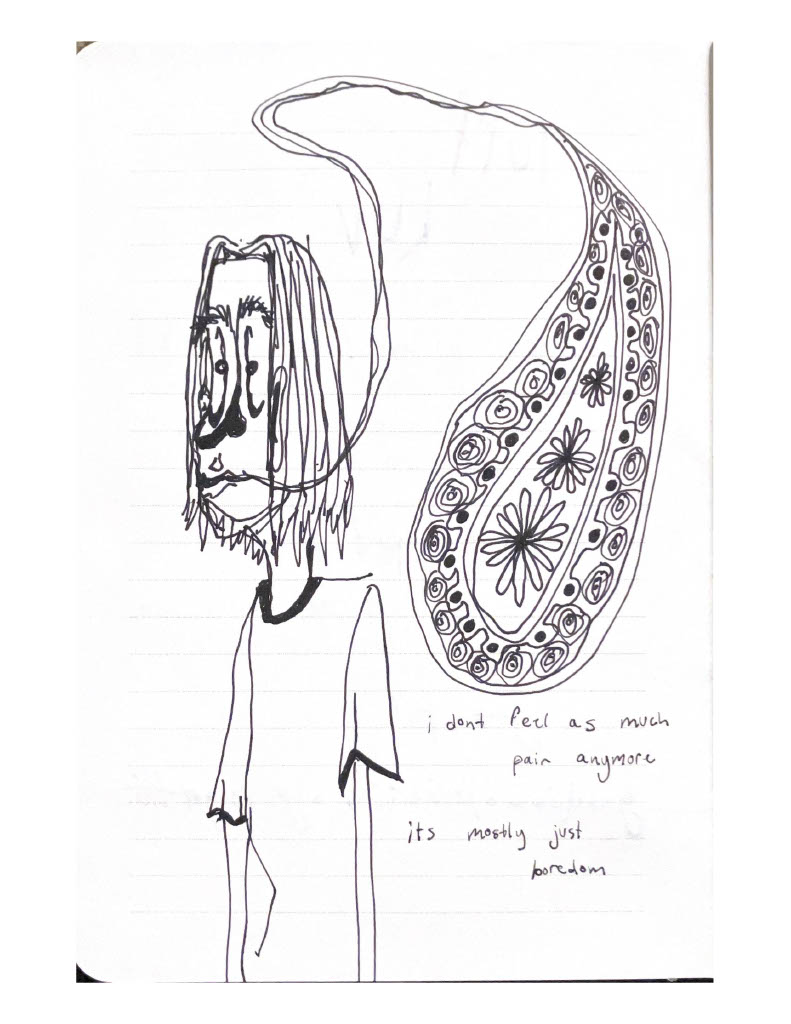 i dont feel as much
pain anymore
its mostly just
boredom